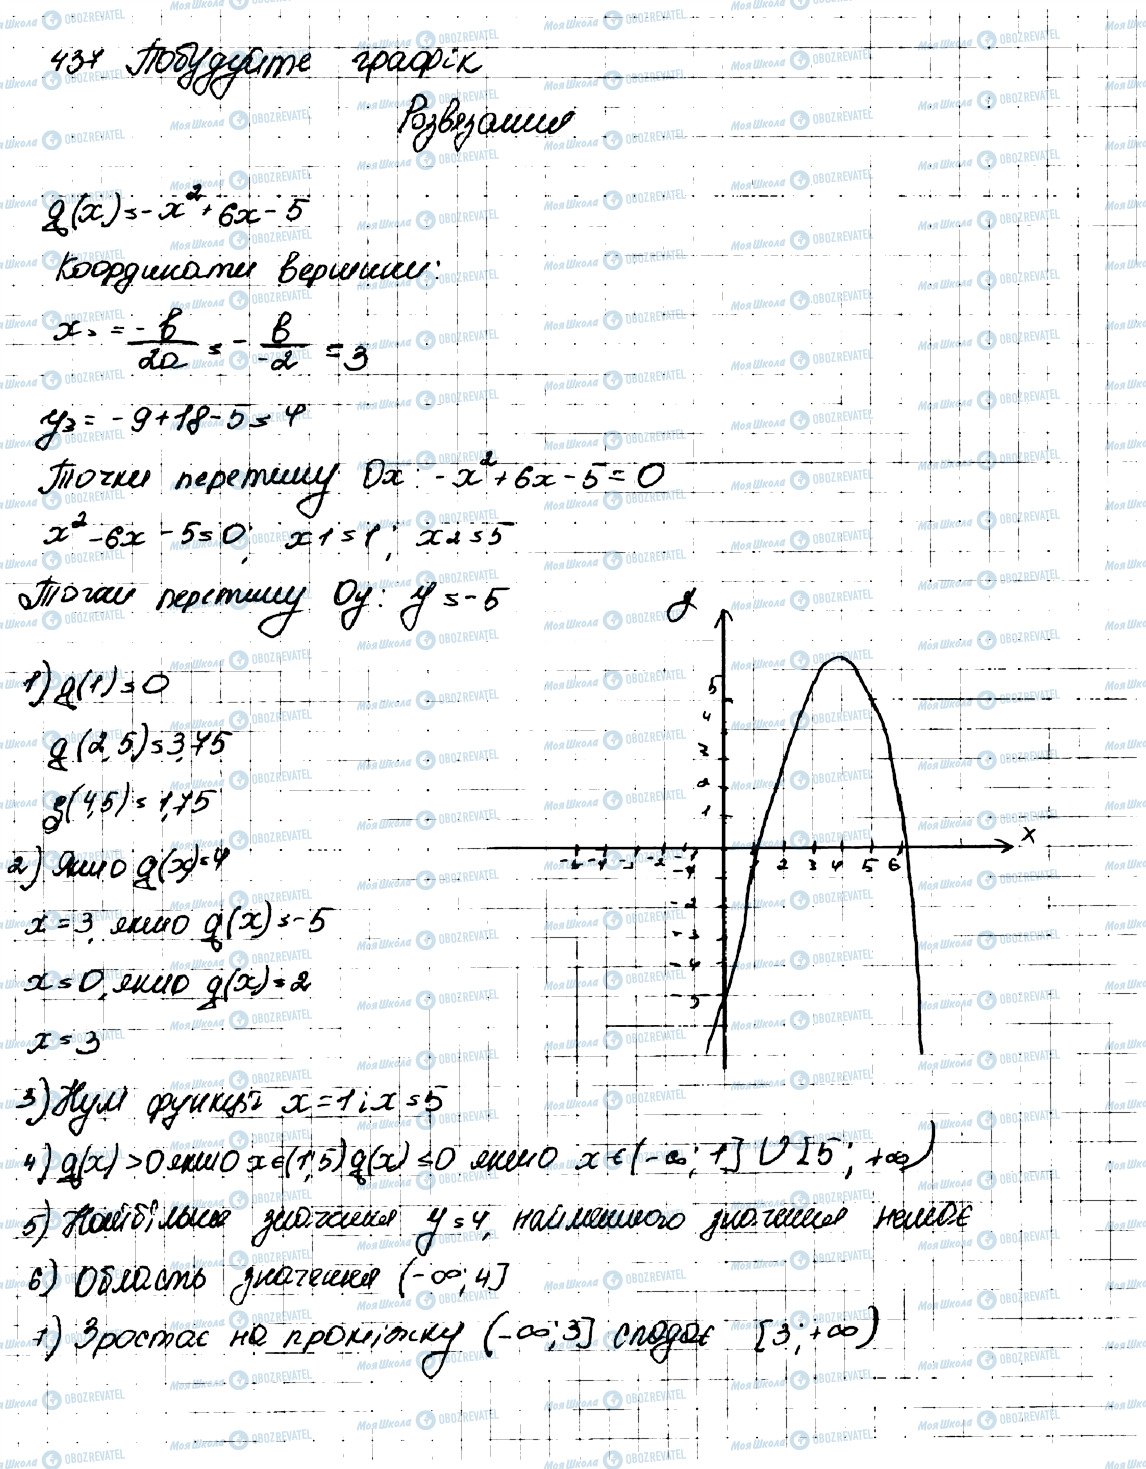 437 Побудуйте графік
Розвязання
g(x)=-x²+6x-5
Координати вершини:
x₀ = -b/2a = - 6/-2 = 3
y₀ = -9+18-5=4
Точки перетину Ox: -x²+6x-5=0
x²-6x-5=0; x1=1; x2=5
Точки перетину Oy: y=-5
1) g(1)=0
g(2,5)=3,75
g(4,5)=1,75
2) Якщо g(x)=4
x=3, якщо g(x)=-5
x=0, якщо g(x)=2
x=3
3) Нулі функції x=1 і x=5
4) g(x)>0 якщо x∈(1;5) g(x)≤0 якщо x∈(-∞;1]∪[5;+∞)
5) Найбільше значення y=4, найменшого значення немає
6) Область значення (-∞;4]
7) Зростає на проміжку (-∞;3] спадає [3;+∞)
y
5
4
3
2
1
x
1 2 3 4 5 6
-2
-3
-4
-5
Моя Школа OBOZREVATEL